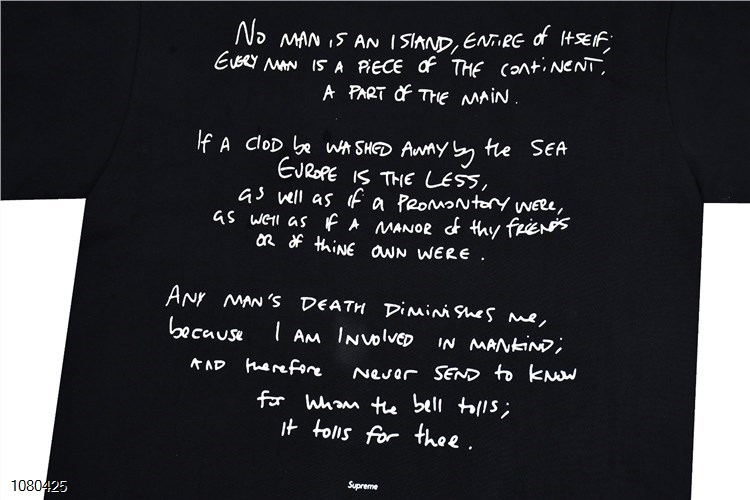 No MAN iS AN ISLAND, ENTIRE of ITSELF;
EVERY MAN IS A PiECE OF THE CONTiNENT,
A PART OF THE MAIN.
If A CLOD be WASHED AWAY by the SEA
EUROPE IS THE LESS,
as well as if a PROMONTORY WERE,
as well as IF A MANOR of thy FRiENDS
OR of thiNE OWN WERE.
ANY MAN'S DEATH DiMiNiSHES me,
because I AM INVOLVED IN MANKiND;
AND therefore NEVER SEND to KNOW
for whom the bell tolls;
It tolls for thee.
Supreme
1080425